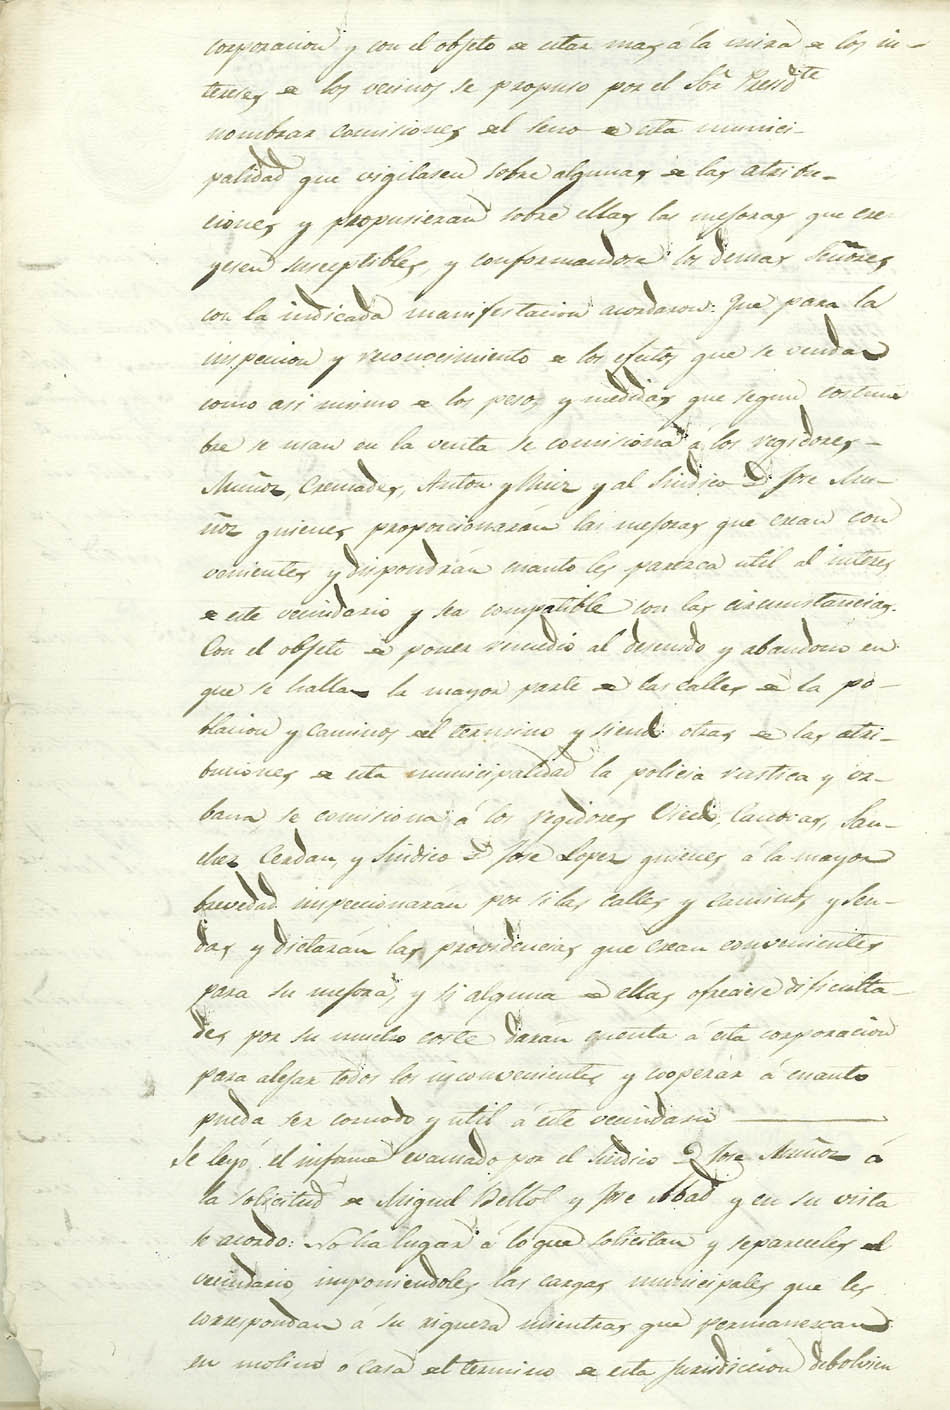 corporacion y con el objeto de estar mas á la mira de los in-
tereses de los vecinos se propuso por el Sor. Presidte
nombrar comisiones del seno de esta munici-
palidad que vigilasen sobre algunas de las atribu-
ciones y propusieran sobre ellas las mejoras que cre
yesen susceptibles, y conformandose los demas Señores
con la indicada manifestacion acordaron: Que para la
inspecion y reconocimiento de los efectos que se vendan
como asi mismo de los pesos y medidas que segun costum
bre se usan en la venta se comisiona á los regidores
Muñoz, Cremades, Anton y Ruiz y al Sindico D. Jose Mu-
ñoz quienes proporcionarán las mejoras que crean con
venientes y dispondrán cuanto les parezca util al interes
de este vecindario y sea compatible con las circunstancias.
Con el objeto de poner remedio al descuido y abandono en
que se hallan la mayor parte de las calles de la po-
blacion y caminos del termino y siendo otras de las atri-
buciones de esta municipalidad la policia rustica y ur-
bana, se comisiona á los regidores Canovas, San-
chez Cerdan, y Sindico D. Jose Lopez quienes á la mayor
brevedad inspecionarán por si las calles y caminos y sen-
das y dictarán las providencias que crean convenientes
para su mejora, y si alguna de ellas ofreciese dificulta-
des por su mucho coste darán cuenta á esta corporacion
para alejar todos los inconvenientes y cooperar á cuanto
pueda ser comodo y util á este vecindario
Se leyó el informe evacuado por el Sindico D. Jose Muñoz á
la solicitud de Miguel Beltol y Jose Abad y en su vista
se acordo: No ha lugar á lo que solicitan y separeceles del
vecindario imponiendoles las cargas municipales que les
correspondan á su riqueza mientras que permanezcan
en molino ó casa del termino de esta jurisdiccion debolvien